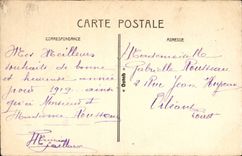 CARTE POSTALE
CORRESPONDANCE
ADRESSE
Mes Meilleurs
souhaits de bonne
et heureuse année
pour 1919 ainsi
qu'à Monsieur et
Madame Rousseau
Mademoiselle
Gabrielle Rousseau
2 Rue Jean
Orléans
Loiret